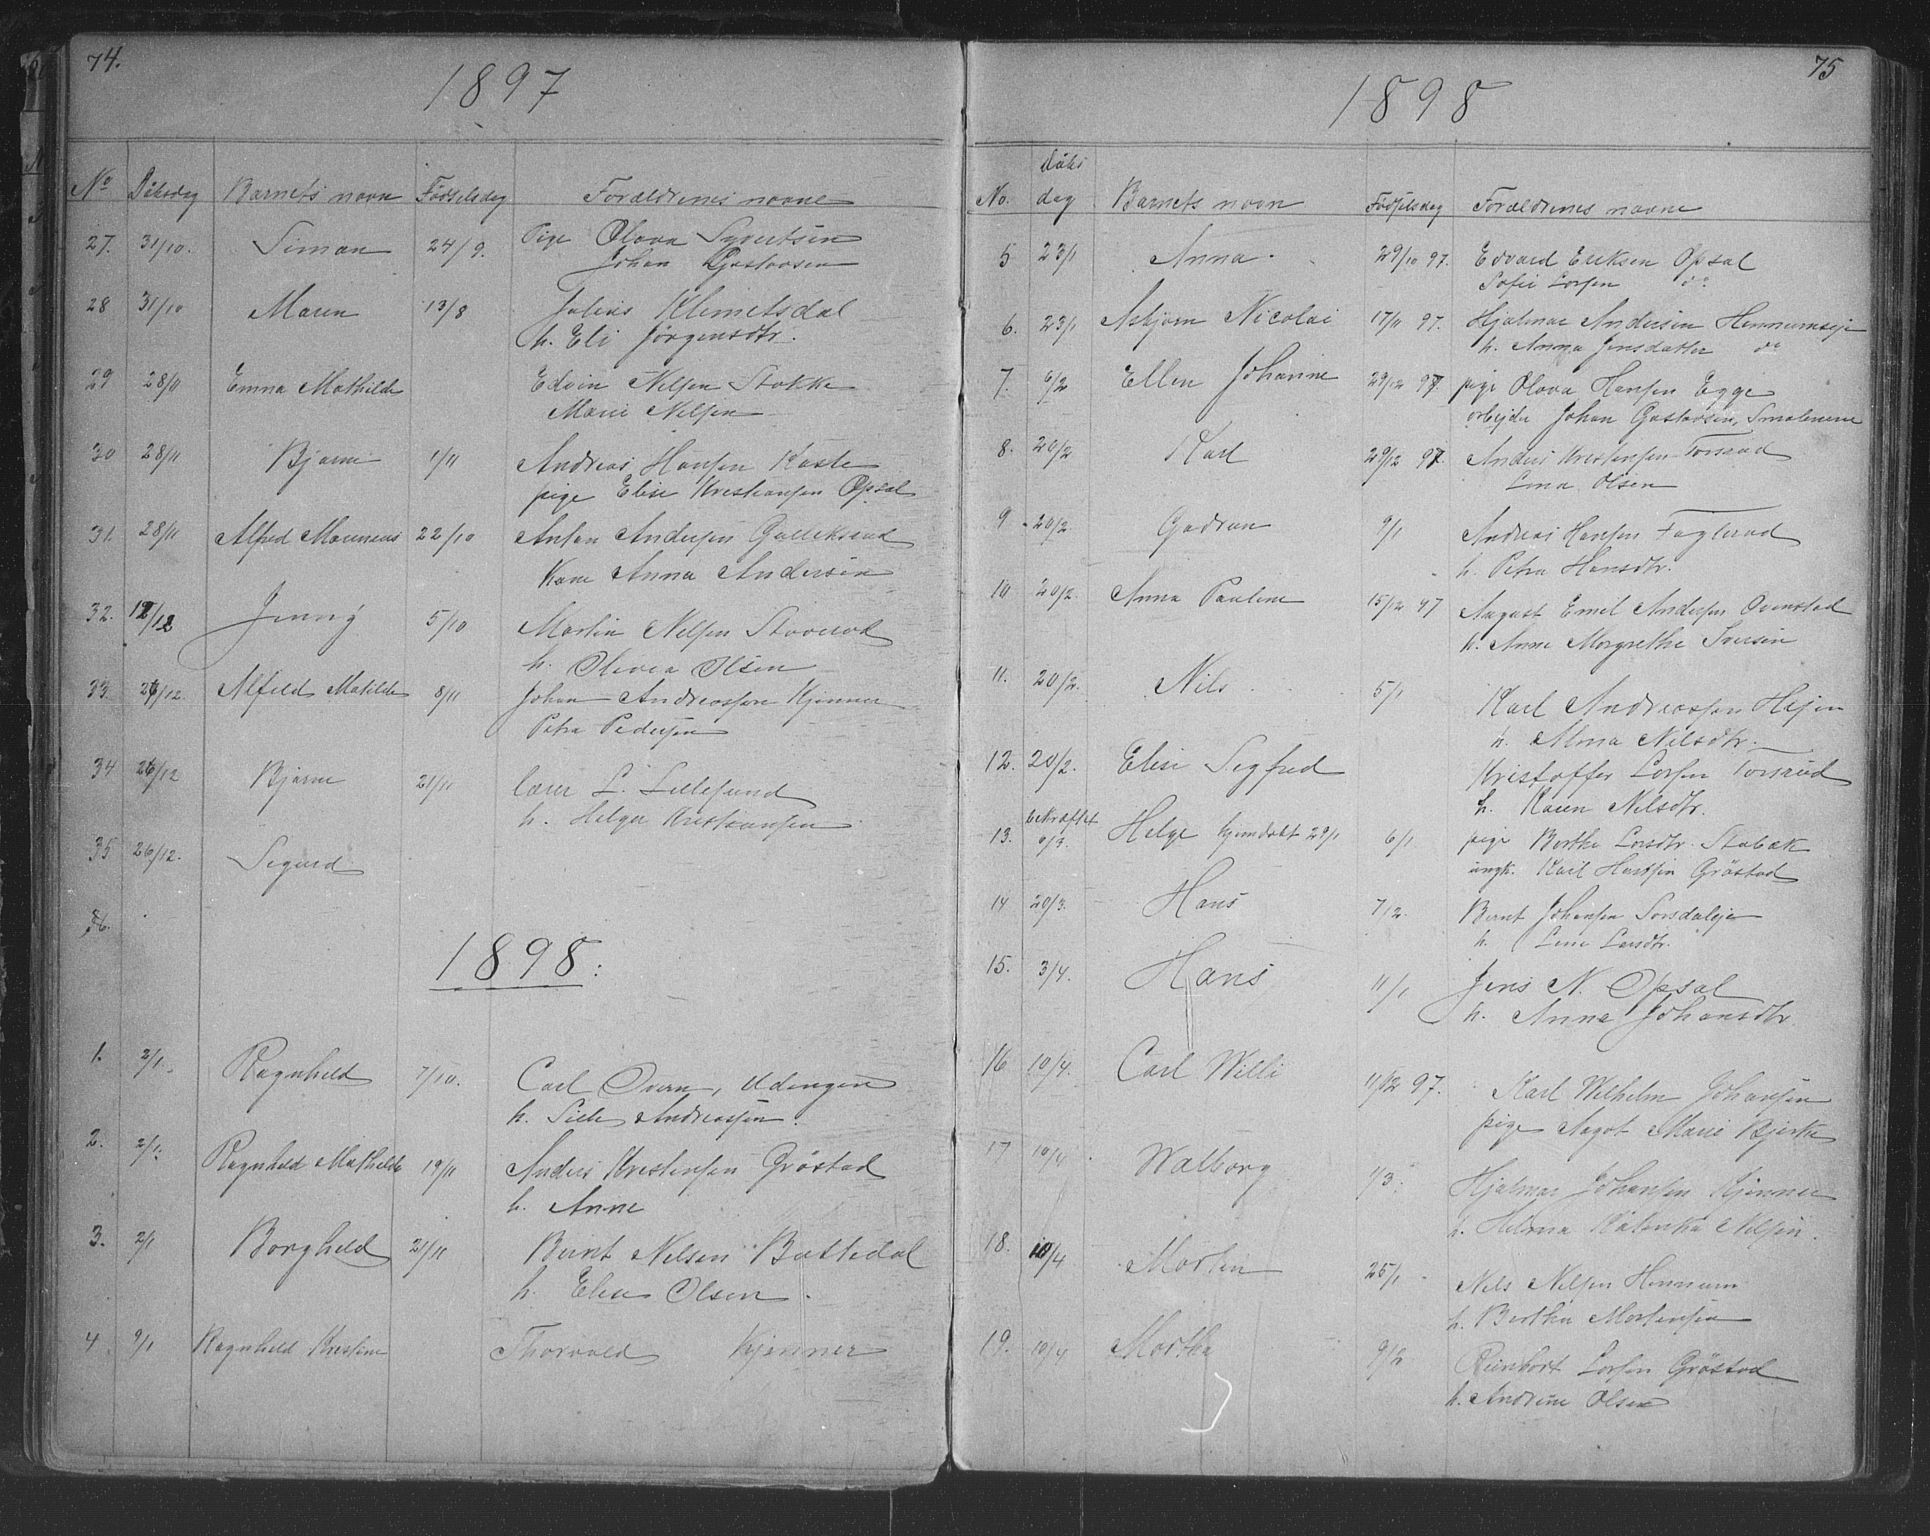 74.
1897
No Dåbsdag Barnets navn Fødselsdag Forældrenes navne
27. 31/10. Simon 24/9. Pige Olava Syvertsen
Johan Gustavsen
28 31/10 Maren 13/8 Julius Klemetsdal
h. Eli Jørgensdtr.
29 28/11 Emma Mathilde Edvin Nilsen Stokke
Marie Nilsen
30 28/11 Bjarne 1/11 Andreas Hansen Kaste
pige Elise Kristiansen Opsal
31. 28/11 Alfred Marinius 22/10 Anton Andersen Gulleksrud
Kone Anna Andersen
32. 12/12 Jenny 5/10 Martin Nilsen
h. Olivia Olsen
33. 26/12. Alfild Matilde 8/11 Johan Andreassen Kjenner
Petra Pedersen
34 26/12 Bjarne 21/11 Lærer L. Lillesund
h. Helga Kristiansen
35 26/12. Sigurd
36.
1898.
1. 2/1. Ragnhild 7/10. Carl Overn, Udengen
h. Sille Andreassen.
2. 2/1. Ragnhild Mathilde 19/11 Anders Kristensen Grøstad
h. Anne
3. 2/1 Borghild 21/11 Bernt Nilsen Battedal
h. Elise Olsen.
4 9/1 Ragnhild Kristine Thorvald Kjenner
75
1898
No. Dåbsdag Barnets navn Fødselsdag Forældrenes navne
5 23/1 Anna. 29/10 97. Edvard Eriksen Opsal
Sofie Larsen do
6. 23/1 Asbjørn Nicolai 17/11 97. Hjalmar Andersen Hennumseje
h. Anna Jensdatter do
7. 6/2 Ellen Johanne 29/12 97 pige Olava Hansen Egge
arbejder Johan Gustavsen, Smalenene
8. 20/2 Karl 29/12 97 Anders Kristensen Torsrud
Lina Olsen
9 20/2 Gudrun 9/1 Andreas Hansen Faglerud
h. Petra Hansdtr.
10 20/2. Anna Pauline 15/12 97 August Emil Andersen Ovenstad
h. Anne Margrethe Iversen
11. 20/2. Nils 5/1 Karl Andreassen Hejen
h. Alma Nilsdtr.
12. 20/2. Elise Sigfred Kristoffer Larsen Torsrud
h. Karen Nilsdtr.
13. bekræftet 6/3. Helge hjemdøbt 29/1 6/1 pige Berthe Larsdtr. Stabæk
ungk. Karl Hansen Grøstad
14 20/3. Hans 7/2. Bernt Johansen Sorsdaleje
h. Line Larsdtr.
15. 3/4. Hans 11/1 Jens N. Opsal
h. Anne Johansdtr.
16 10/4. Carl Willi 11/12 97. Karl Wilhelm Johansen
pige Aagot Marie Bjerke
17 10/4. Walborg 1/3. Hjalmar Johansen Kjenner
h. Helma Katinka Nilsen.
18. 10/4 Martin 25/1 Nils Nilsen Hennum
h. Berthe Mortensen
19. 10/4 Martha 9/2 Reinhart Larsen Grøstad
h. Andrine Olsen